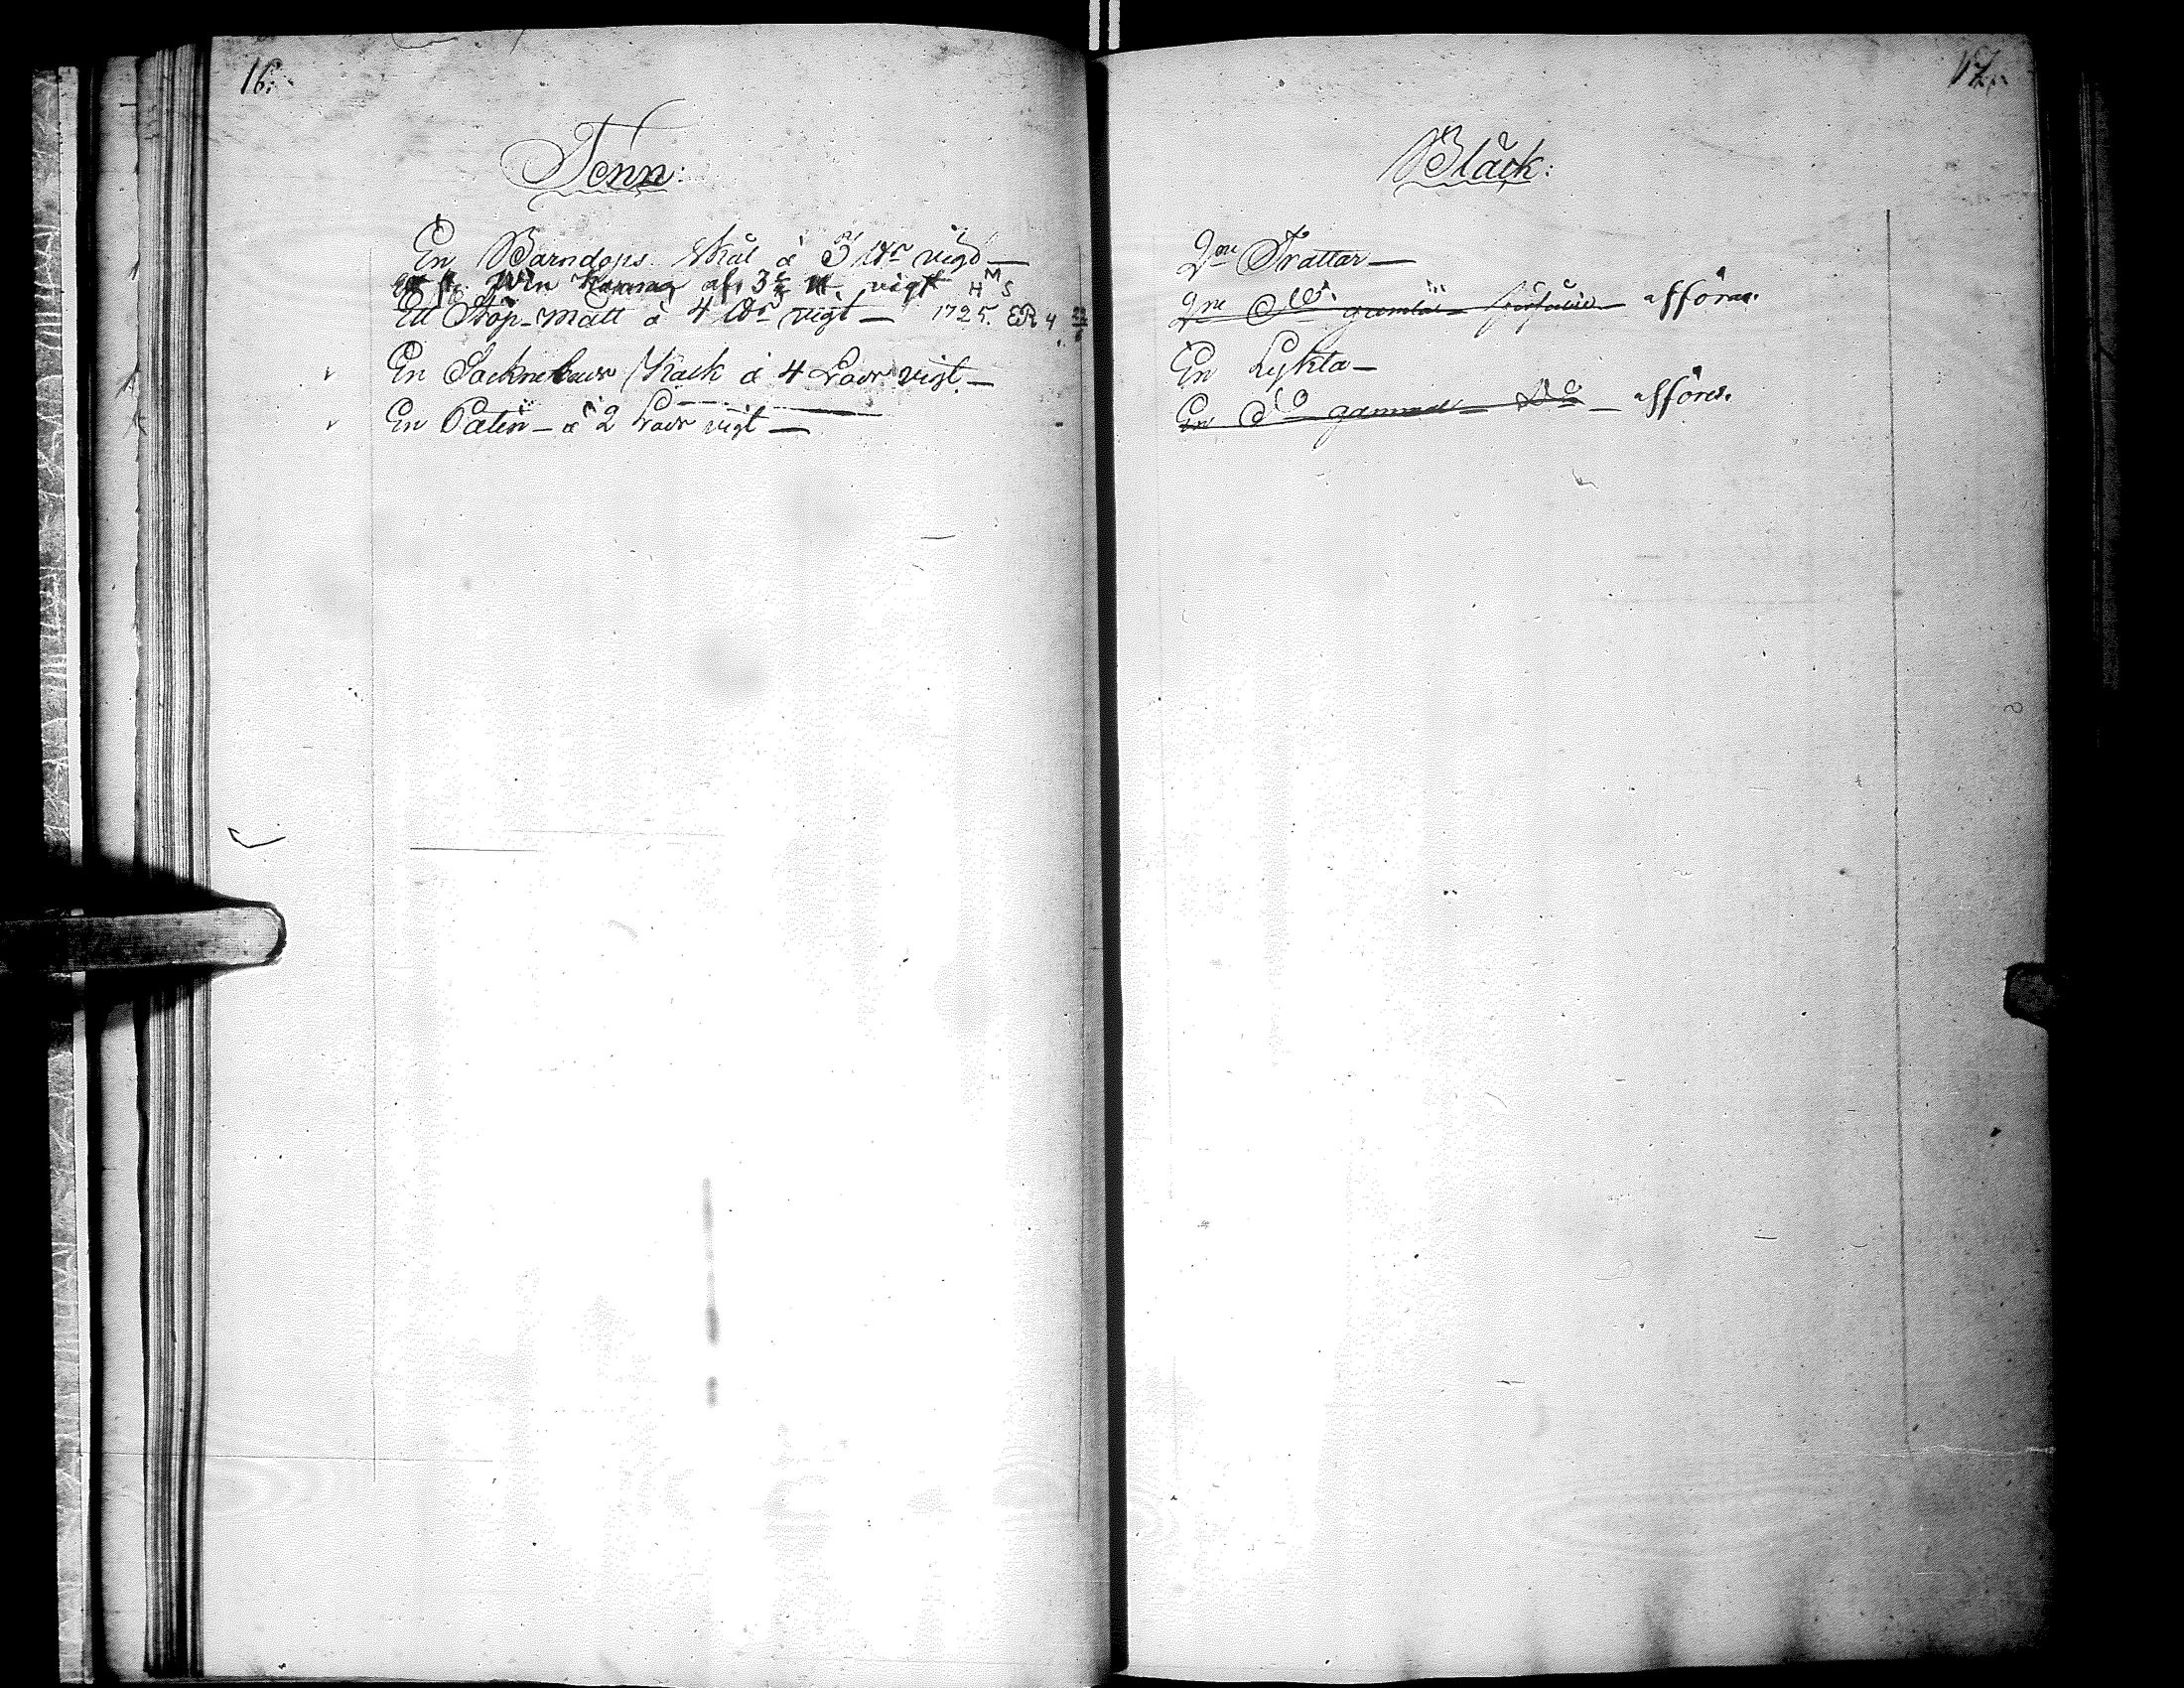 16.
Tenn:
En Barndops Skål à 3 ℔r vigt —
Win Kanna af 3 ½ ℔ vigt
M
H S
Ett Stop-Mått à 4 ℔r vigt — 1725. ER 4
En Sacknebuds Kalk à 4 Lods vigt —
En Paten — à 2 Lods vigt —
17.
Bläck:
2ne Trattar —
2ne do gamla afföras.
En Lykta —
En do gammal do — afföres.